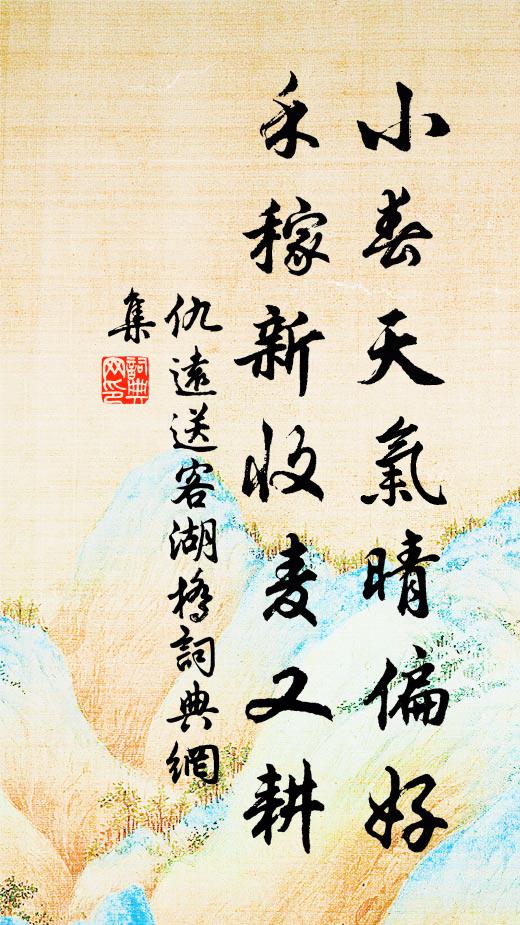 小春天氣晴偏好
禾稼新收麦又耕
仇遠送客湖橋詞典網
集
詞典
网印